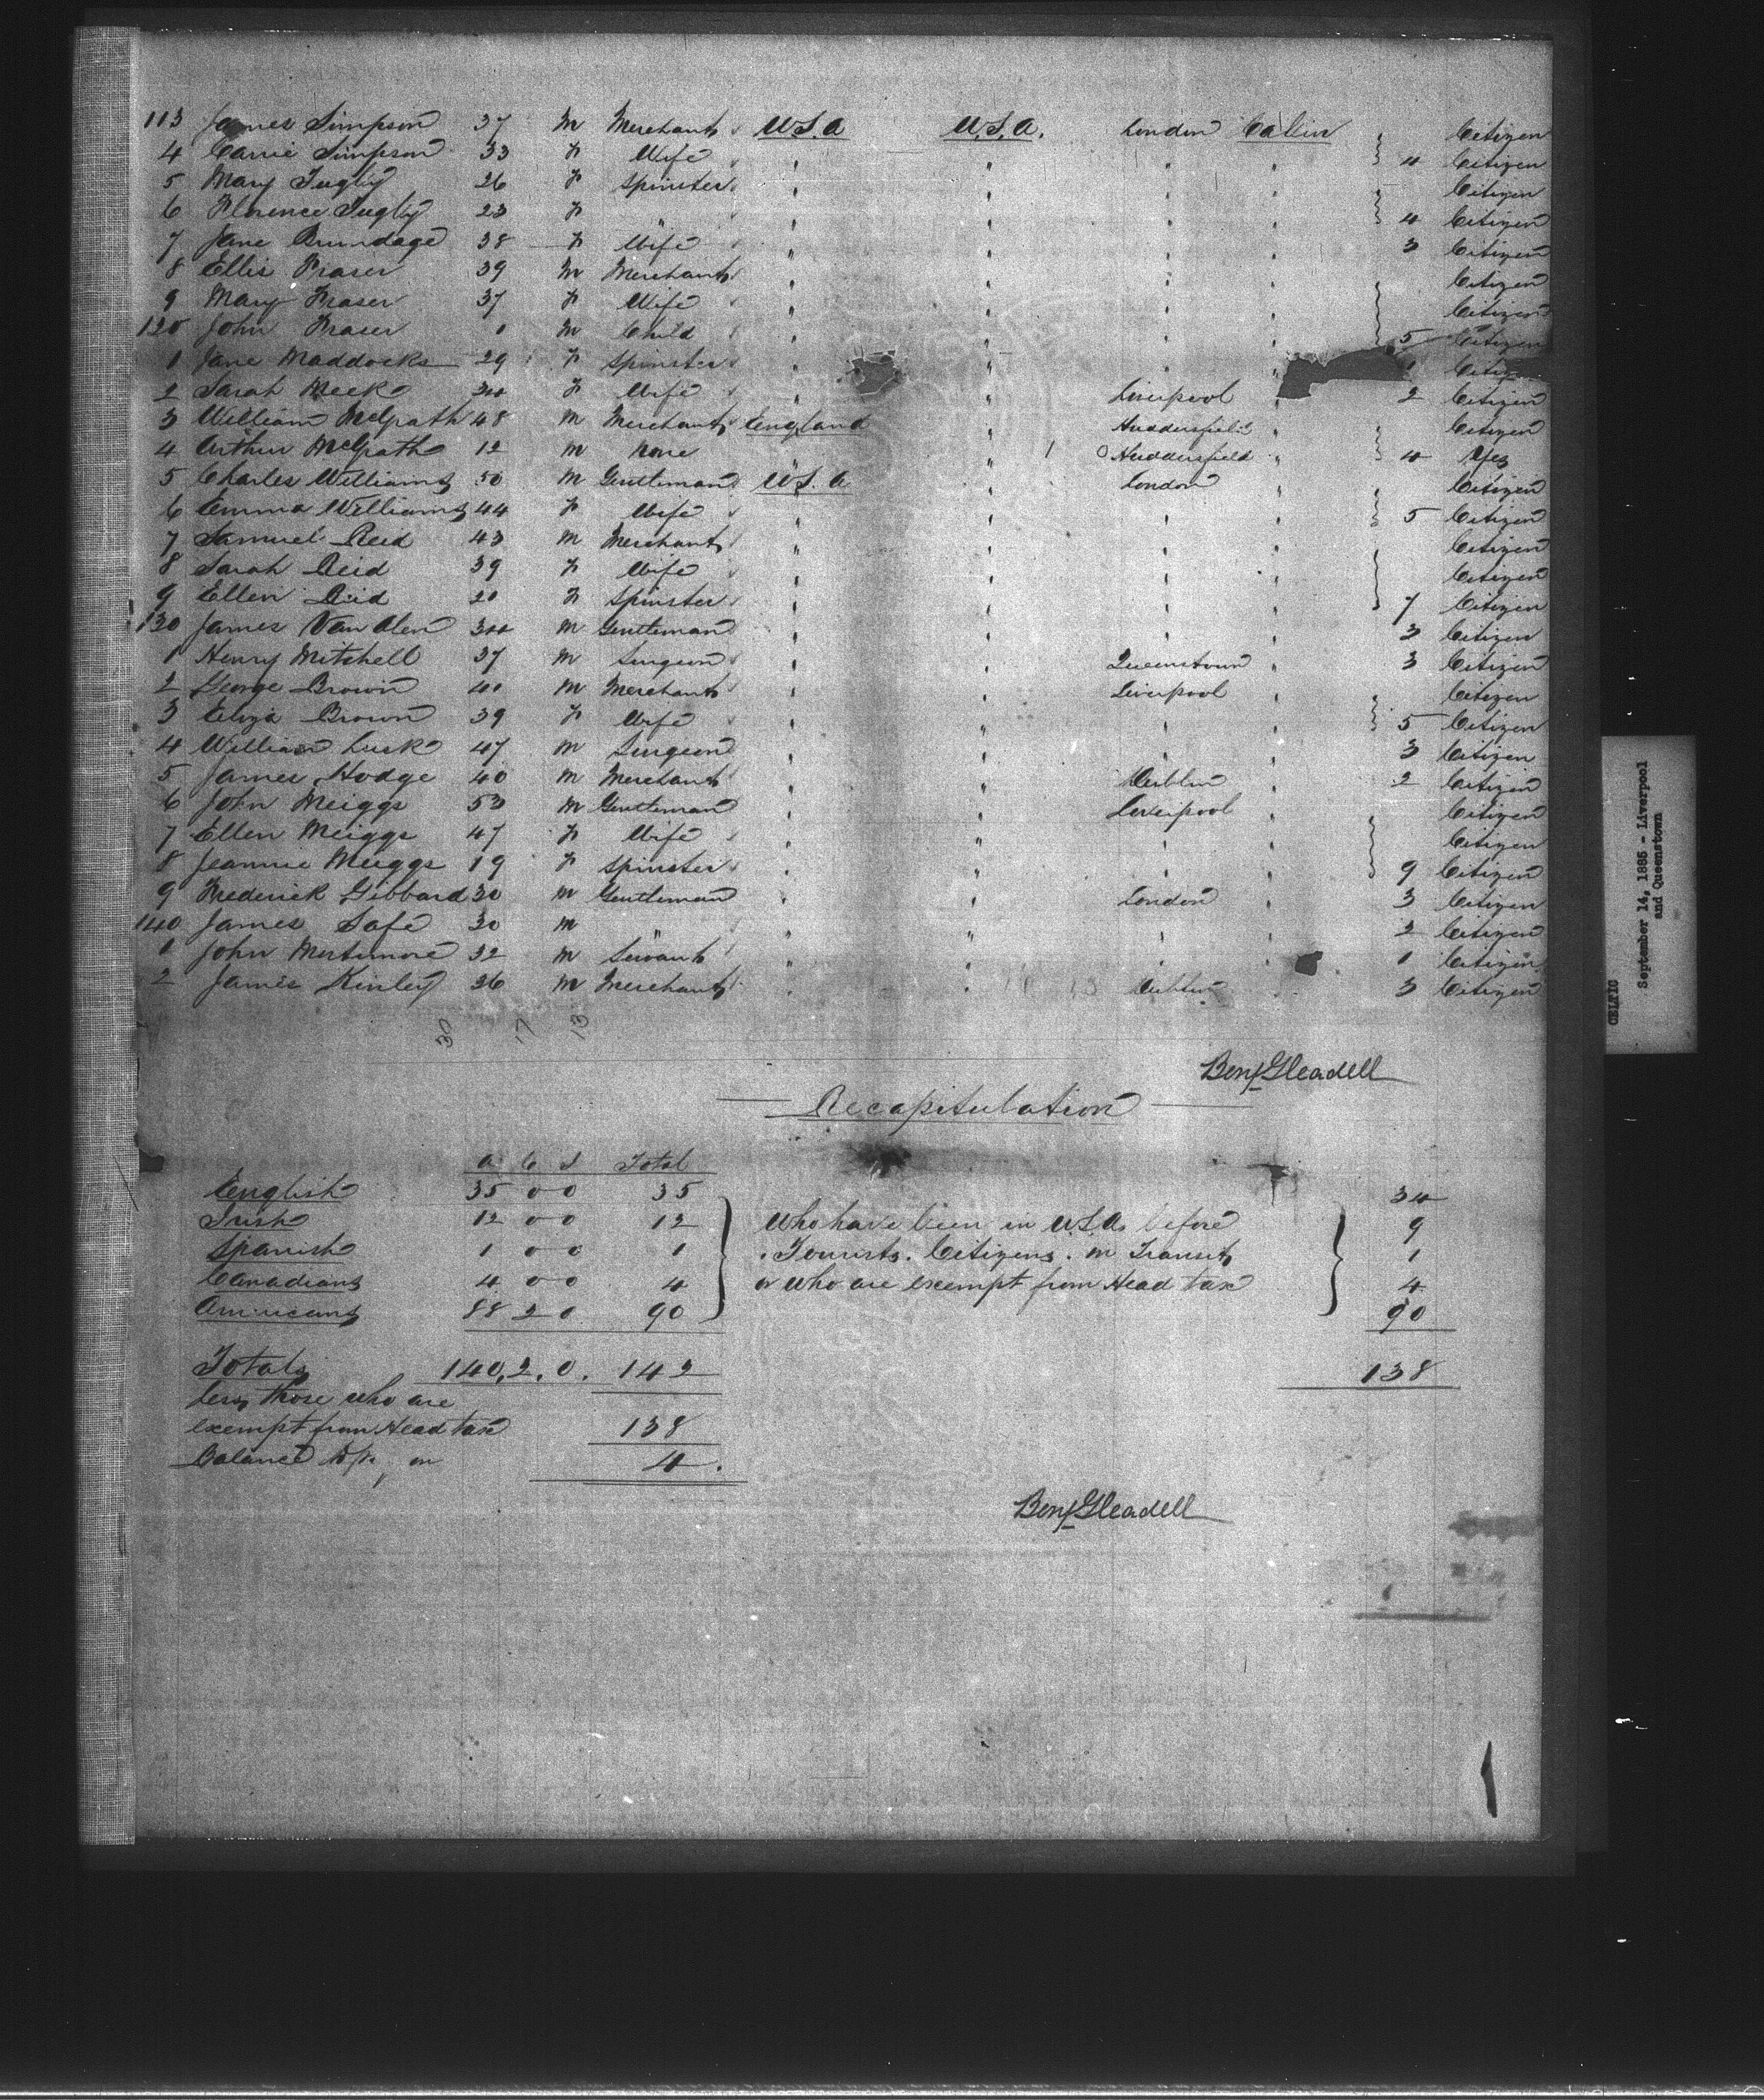 113 James Simpson 37 M Merchant U.S.A U.S.A. London Cabin Citizen
4 Carrie Simpson 33 F Wife " " " " 4 Citizen
5 Mary Tugby 26 F Spinster " " " " Citizen
6 Florence Tugby 23 F " " " " " 4 Citizen
7 Jane Brundage 38 F Wife " " " " 3 Citizen
8 Ellis Fraser 39 M Merchant " " " " Citizen
9 Mary Fraser 37 F Wife " " " " Citizen
120 John Fraser M Child " " " " 5 Citizen
1 Jane Maddocks 29 F Spinster " " 1 Citizen
2 Sarah Meek 34 F Wife " " Liverpool " 2 Citizen
3 William McGrath 48 M Merchant England " Huddersfield " Citizen
4 Arthur McGrath 12 M None " Huddersfield " 4 Yes
5 Charles Williams 50 M Gentleman U.S.A " London " Citizen
6 Emma Williams 44 F Wife " " " " 5 Citizen
7 Samuel Reid 43 M Merchant " " " " Citizen
8 Sarah Reid 39 F Wife " " " " Citizen
9 Ellen Reid 20 F Spinster " " " " 7 Citizen
130 James Van Alen 34 M Gentleman " " " " 3 Citizen
1 Henry Mitchell 37 M Surgeon " " Queenstown " 3 Citizen
2 George Brown 40 M Merchant " " Liverpool " Citizen
3 Eliza Brown 39 F Wife " " " " 5 Citizen
4 William Lusk 47 M Surgeon " " " " 3 Citizen
5 James Hodge 40 M Merchant " " Dublin " 2 Citizen
6 John Meiggs 53 M Gentleman " " Liverpool " Citizen
7 Ellen Meiggs 47 F Wife " " " " Citizen
8 Jeannie Meiggs 19 F Spinster " " " " 9 Citizen
9 Frederick Gibbard 30 M Gentleman " " London " 3 Citizen
140 James Safe 30 M " " " " " 2 Citizen
1 John Mortimore 32 M Servant " " " " 1 Citizen
2 James Kinley 26 M Merchant " " Dublin " 3 Citizen
30 17 13
Benj Gleadell
Recapitulation
A C I Total
English 35 0 0 35 34
Irish 12 0 0 12 who have been in U.S.A. before 9
Spanish 1 0 0 1 . Tourists. Citizens. in Transit, 1
Canadians 4 0 0 4 or who are exempt from Head tax 4
Americans 88 2 0 90 90
Totals 140, 2, 0. 142 138
Less those who are
exempt from Head tax 138
Balance on 4.
Benj Gleadell
CELTIC
September 14, 1885 - Liverpool
and Queenstown